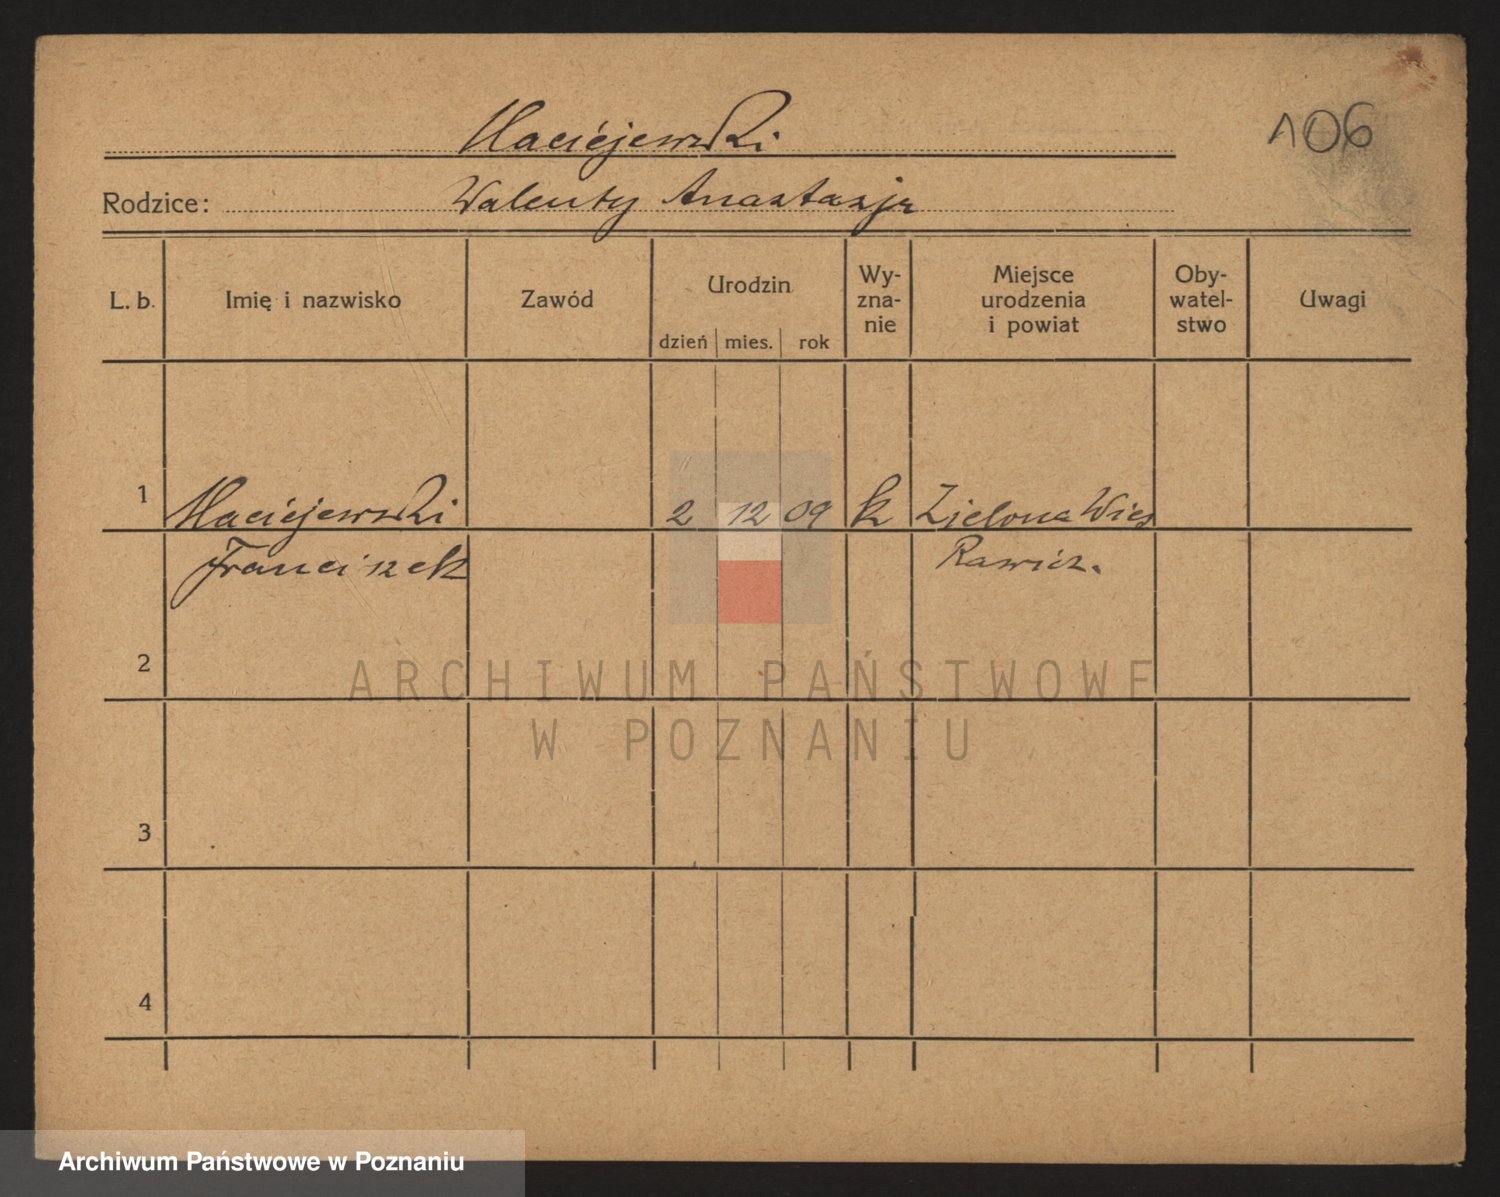 Maciejewski
106
Rodzice: Walenty Anastazja
L. b.
Imię i nazwisko
Zawód
Urodzin
dzień mies. rok
Wy-
zna-
nie
Miejsce
urodzenia
i powiat
Oby-
watel-
stwo
Uwagi
1 Maciejewski 2 12 09 k Zielona Wieś
Franciszek Rawicz.
2
3
4
ARCHIWUM PAŃSTWOWE
W POZNANIU
Archiwum Państwowe w Poznaniu